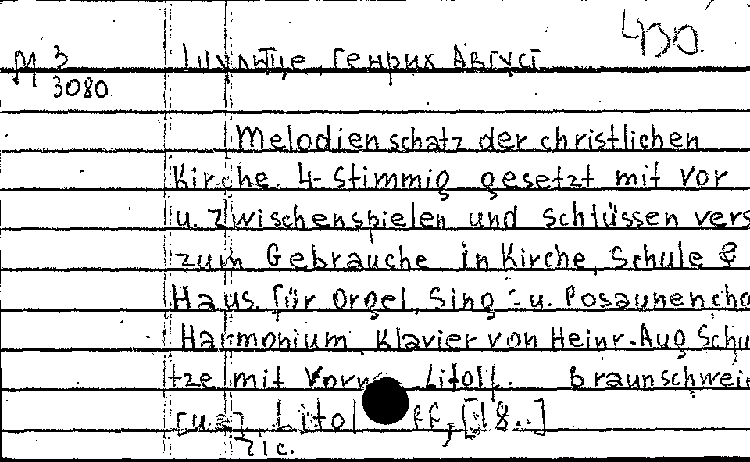 430.
М 3/3080 Шультце, Генрих Август
Melodienschatz der christlichen
Kirche. 4-stimmig gesetzt mit Vor
u. Zwischenspielen und Schlüssen vers
zum Gebrauche in Kirche, Schule &
Haus. für Orgel, Sing- u. Posaunencho
Harmonium. Klavier von Heinr. Aug Schu
tze mit Litolf. Braunschwei
[u.a.] Litolff, [18..]